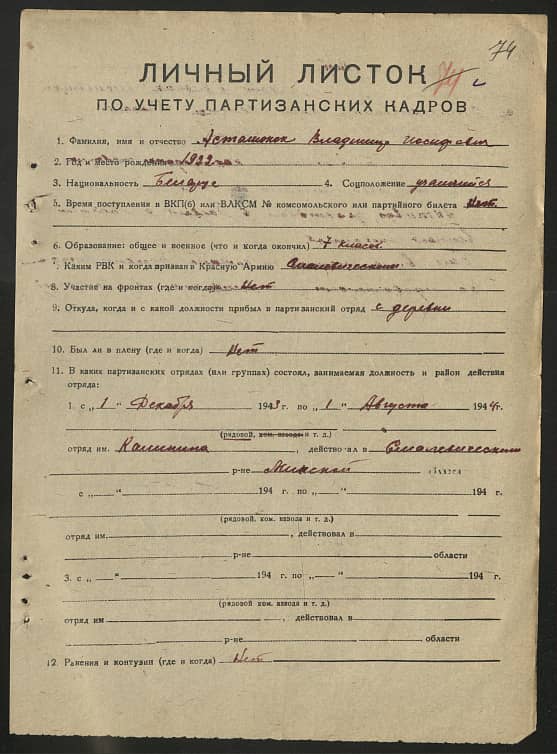 74
74
ЛИЧНЫЙ ЛИСТОК
ПО УЧЕТУ ПАРТИЗАНСКИХ КАДРОВ
1. Фамилия, имя и отчество Асташонок Владимир Иосифович
2. Год и место рождения 1922
3. Национальность Белорус 4. Соцположение учащийся
5. Время поступления в ВКП(б) или ВЛКСМ № комсомольского или партийного билета Нет
6. Образование: общее и военное (что и когда окончил) 7 классов
7. Каким РВК и когда призван в Красную Армию Смолевическим
8. Участие на фронтах (где и когда) Нет
9. Откуда, когда и с какой должности прибыл в партизанский отряд с деревни
10. Был ли в плену (где и когда) Нет
11. В каких партизанских отрядах (или группах) состоял, занимаемая должность и район действия
отряда:
1. с „1“ Декабря 1943 г. по „1“ Августа 1944г.
(рядовой, ком. взвода и т. д.)
отряд им. Калинина, действовал в Смалевическом
р-не Минской области
с „ “ 194 г. по „ “ 194 г.
(рядовой, ком. взвода и т. д.)
отряд им. , действовал в
р-не области
3. с „ “ 194 г. по „ “ 194 г.
(рядовой ком. взвода и т. д.)
отряд им , действовал в
р-не области
12. Ранения и контузии (где и когда) Нет